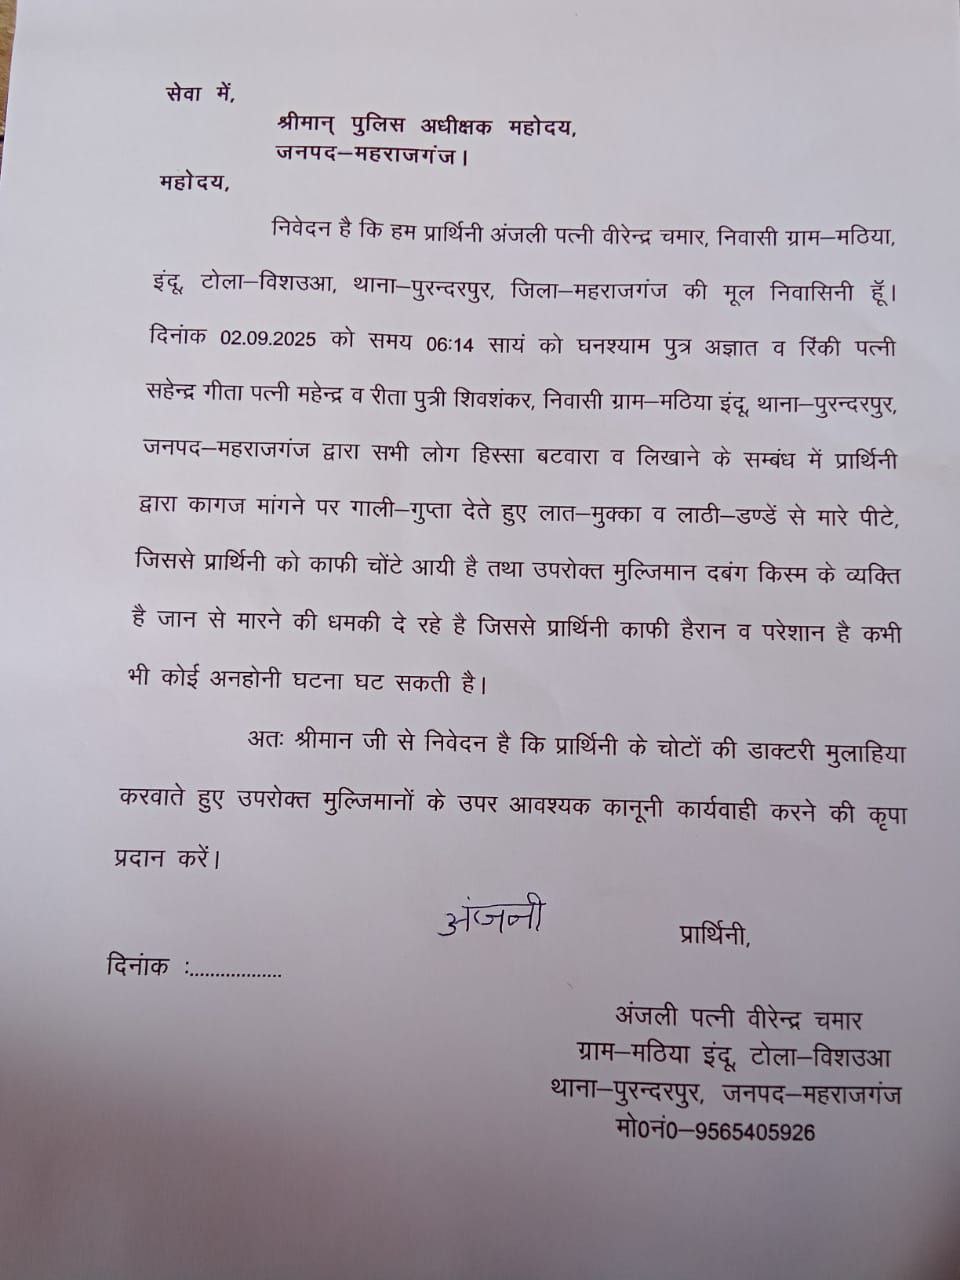 सेवा में,
श्रीमान् पुलिस अधीक्षक महोदय,
जनपद–महराजगंज।
महोदय,
निवेदन है कि हम प्रार्थिनी अंजली पत्नी वीरेन्द्र चमार, निवासी ग्राम–मठिया,
इंदू, टोला–विशउआ, थाना–पुरन्दरपुर, जिला–महराजगंज की मूल निवासिनी हूॅ।
दिनांक 02.09.2025 को समय 06:14 सायं को घनश्याम पुत्र अज्ञात व रिंकी पत्नी
सहेन्द्र गीता पत्नी महेन्द्र व रीता पुत्री शिवशंकर, निवासी ग्राम–मठिया इंदू, थाना–पुरन्दरपुर,
जनपद–महराजगंज द्वारा सभी लोग हिस्सा बटवारा व लिखाने के सम्बंध में प्रार्थिनी
द्वारा कागज मांगने पर गाली–गुप्ता देते हुए लात–मुक्का व लाठी–डण्डें से मारे पीटे,
जिससे प्रार्थिनी को काफी चोंटे आयी है तथा उपरोक्त मुल्जिमान दबंग किस्म के व्यक्ति
है जान से मारने की धमकी दे रहे है जिससे प्रार्थिनी काफी हैरान व परेशान है कभी
भी कोई अनहोनी घटना घट सकती है।
अतः श्रीमान जी से निवेदन है कि प्रार्थिनी के चोटों की डाक्टरी मुलाहिया
करवाते हुए उपरोक्त मुल्जिमानों के उपर आवश्यक कानूनी कार्यवाही करने की कृपा
प्रदान करें।
अंजली
प्रार्थिनी,
दिनांक :..................
अंजली पत्नी वीरेन्द्र चमार
ग्राम–मठिया इंदू, टोला–विशउआ
थाना–पुरन्दरपुर, जनपद–महराजगंज
मो0नं0–9565405926